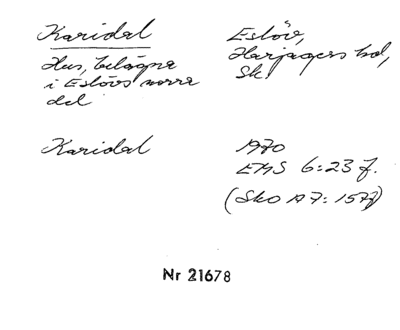 Karidal
Hus, belägna
i Eslövs norra
del
Eslöv,
Harjagers hd,
Sk.
Karidal
1970
EHS 6:23 f.
(Sko A 7:157f)
Nr 21678